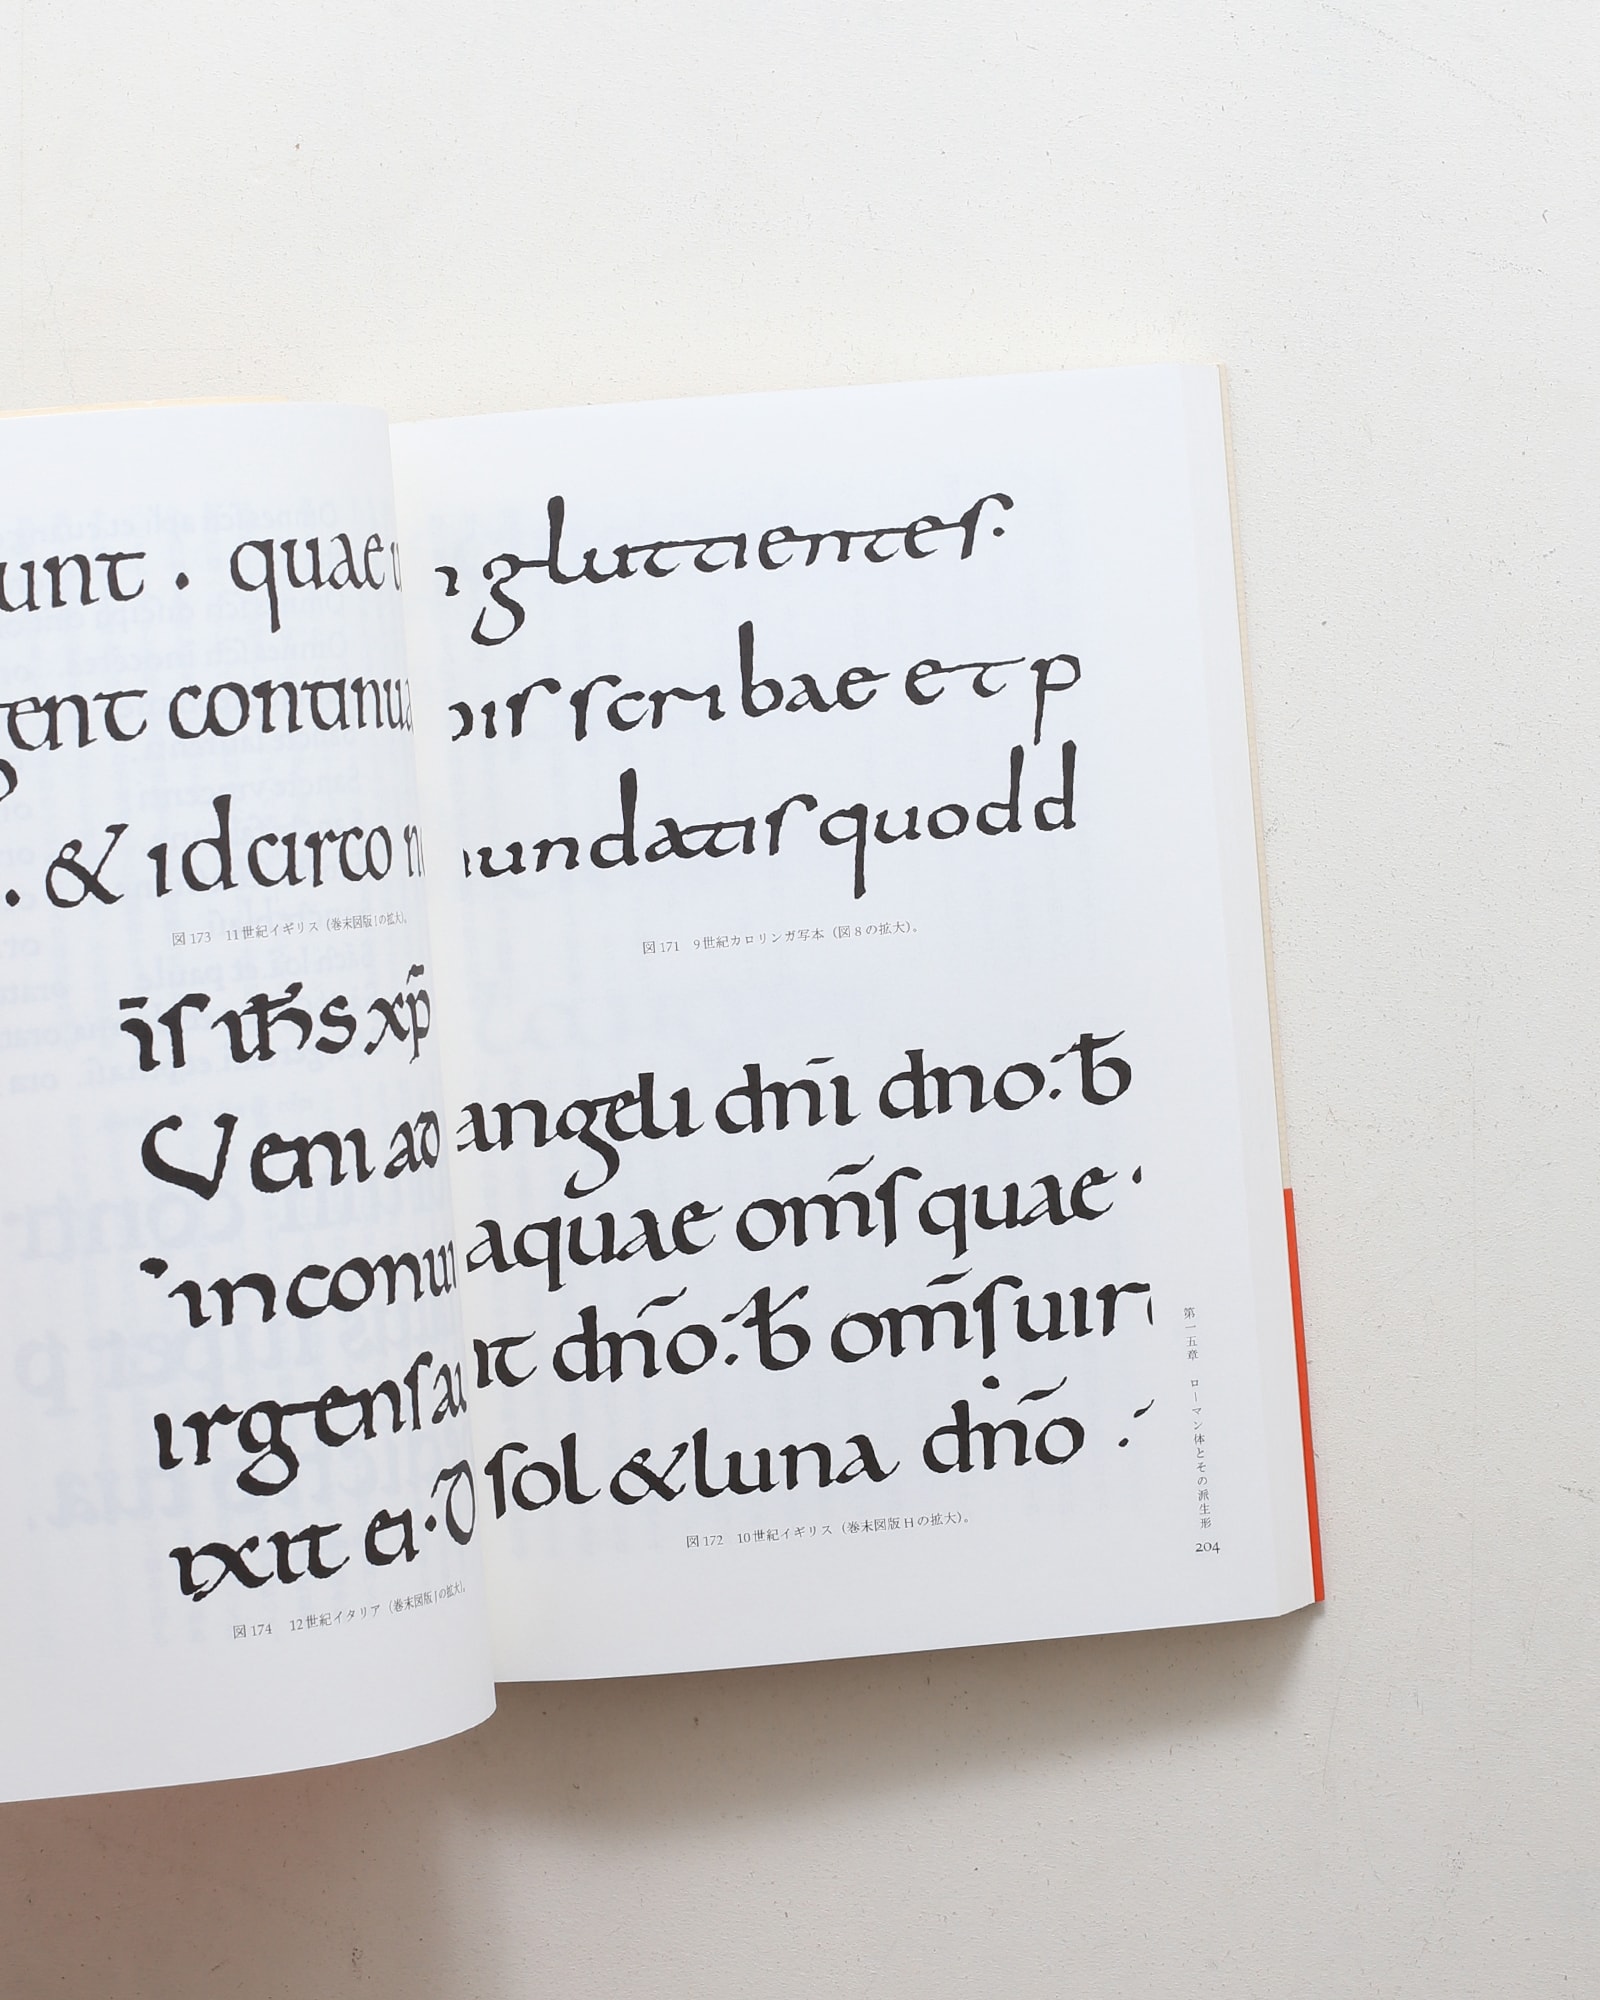 gluttienteſ.
iſ ſcribae et p
undatiſ quodd
図 171　9世紀カロリンガ写本（図 8 の拡大）。
angeli dn̄i dno:· ƀ
aquae om̄ſ quae ·
ıt dn̄o:· ƀ om̄ſ uir
ſol & luna dn̄o :
図 172　10世紀イギリス（巻末図版 H の拡大）。
第一五章　ローマン体とその派生形
204
unt . quae
gent continua
. & idcirco n
図 173　11世紀イギリス（巻末図版 I の拡大）。
īſ ıħs xp̄
Veni ad
in conu
irgenſ au
ixit ei · d
図 174　12世紀イタリア（巻末図版 J の拡大）。